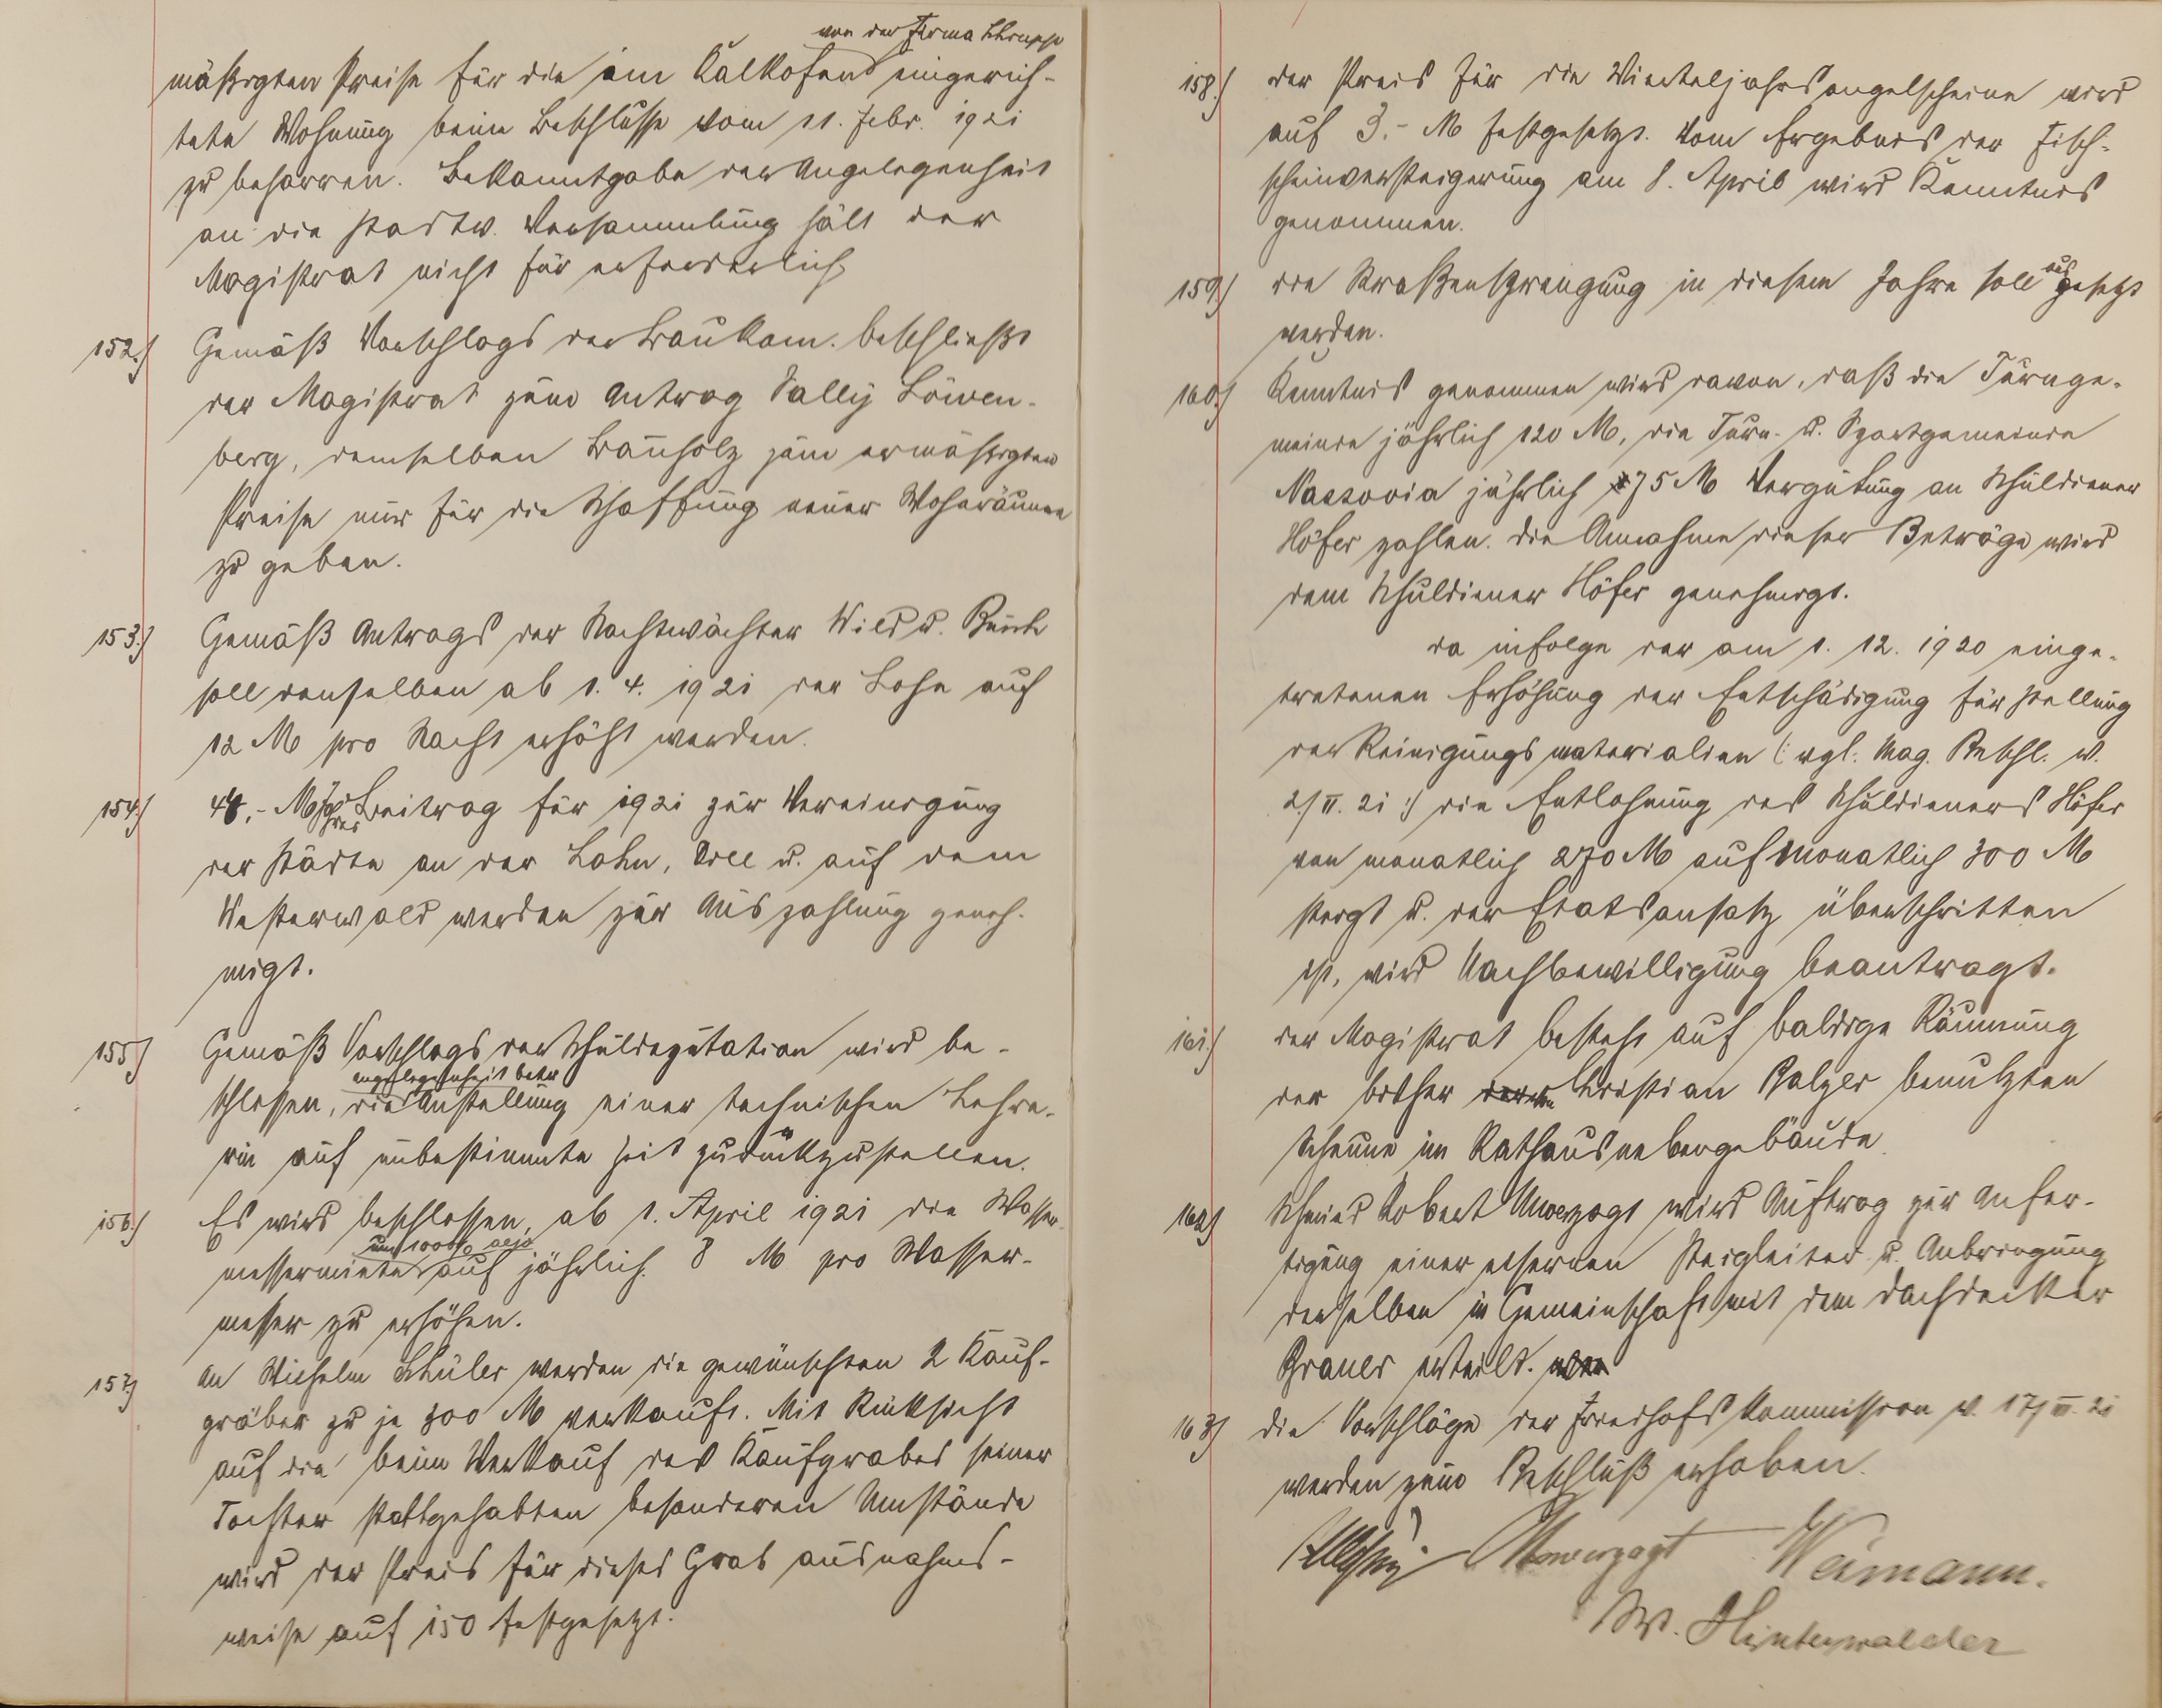 von der Firma Schrupp
mäßigten Preise für die im Kalkofen eingerich-
tete Wohnung beim Beschlusse vom 11. Febr. 1921
zu beharren. Bekanntgabe der Angelegenheit
an die Stadtv. Versammlung hält der
Magistrat nicht für erforderlich
152.) Gemäß Vorschlags der Baukom. beschließt
der Magistrat zum Antrag Sally Löwen-
berg, demselben Bauholz zum ermäßigten
Preise nur für die Schaffung neuer Wohnräume
zu geben.
153.) Gemäß Antrags der Nachtwächter Wild u.
soll denselben ab 1. 4. 1921 der Lohn auf
12 M pro Nacht erhöht werden.
154.) 48,- M Beitrag für 1921 zur Vereinigung
der Städte an der Lahn, Dill u. auf dem
Westerwald werden zur Auszahlung geneh-
migt.
155.) Gemäß Vorschlags der Schuldeputation wird be-
angelegenheit betr
schlossen, die Anstellung einer technischen Lehre-
rin auf unbestimmte Zeit zurückzustellen.
156.) Es wird beschlossen, ab 1. April 1921 die Wasser-
um 100% also
messermiete auf jährlich 8 M pro Wasser-
messer zu erhöhen.
157.) An Wilhelm Schüler werden die gewünschten 2 Kauf-
gräber zu je 300 M verkauft. Mit Rücksicht
auf die beim Verkauf des Kaufgrabes seiner
Tochter stattgehabten besonderen Umstände
wird der Preis für dieses Grab ausnahms-
weise auf 150 festgesetzt.
158.) Der Preis für die Vierteljahrsangelscheine wird
auf 3.- M festgesetzt. Vom Ergebnis der Fisch-
scheinversteigerung am 8. April wird Kenntnis
genommen.
159.) Die Straßensprengung in diesem Jahre soll ausgesetzt
werden.
160.) Kenntnis genommen wird davon, daß die Turnge-
meinde jährlich 120 M, die Turn- u. Sportgemeinde
Nassovia jährlich 75 M Vergütung an Schuldiener
Höfer zahlen. Die Annahme dieser Beträge wird
dem Schuldiener Höfer genehmigt.
Da infolge der am 1. 12. 1920 einge-
tretenen Erhöhung der Entschädigung für Stellung
der Reinigungsmaterialien (: vgl. Mag. Beschl. v.
2./II. 21 :) die Entlohnung des Schuldieners Höfer
von monatlich 270 M auf monatlich 300 M
steigt u. der Etatsansatz überschritten
ist, wird Nachbewilligung beantragt.
161.) Der Magistrat besteht auf baldige Räumung
der bisher von Christian Balzer benutzten
Scheune im Rathausnebengebäude.
162.) Schmied Robert Unverzagt wird Auftrag zur Anfer-
tigung einer eisernen Steigleiter u. Anbringung
derselben in Gemeinschaft mit dem Dachdecker
Brauer erteilt.
163.) Die Vorschläge der Friedhofskommission v. 17/III. 21
werden zum Beschluß erhoben.
Unverzagt Weimann.
W. Hinterwälder